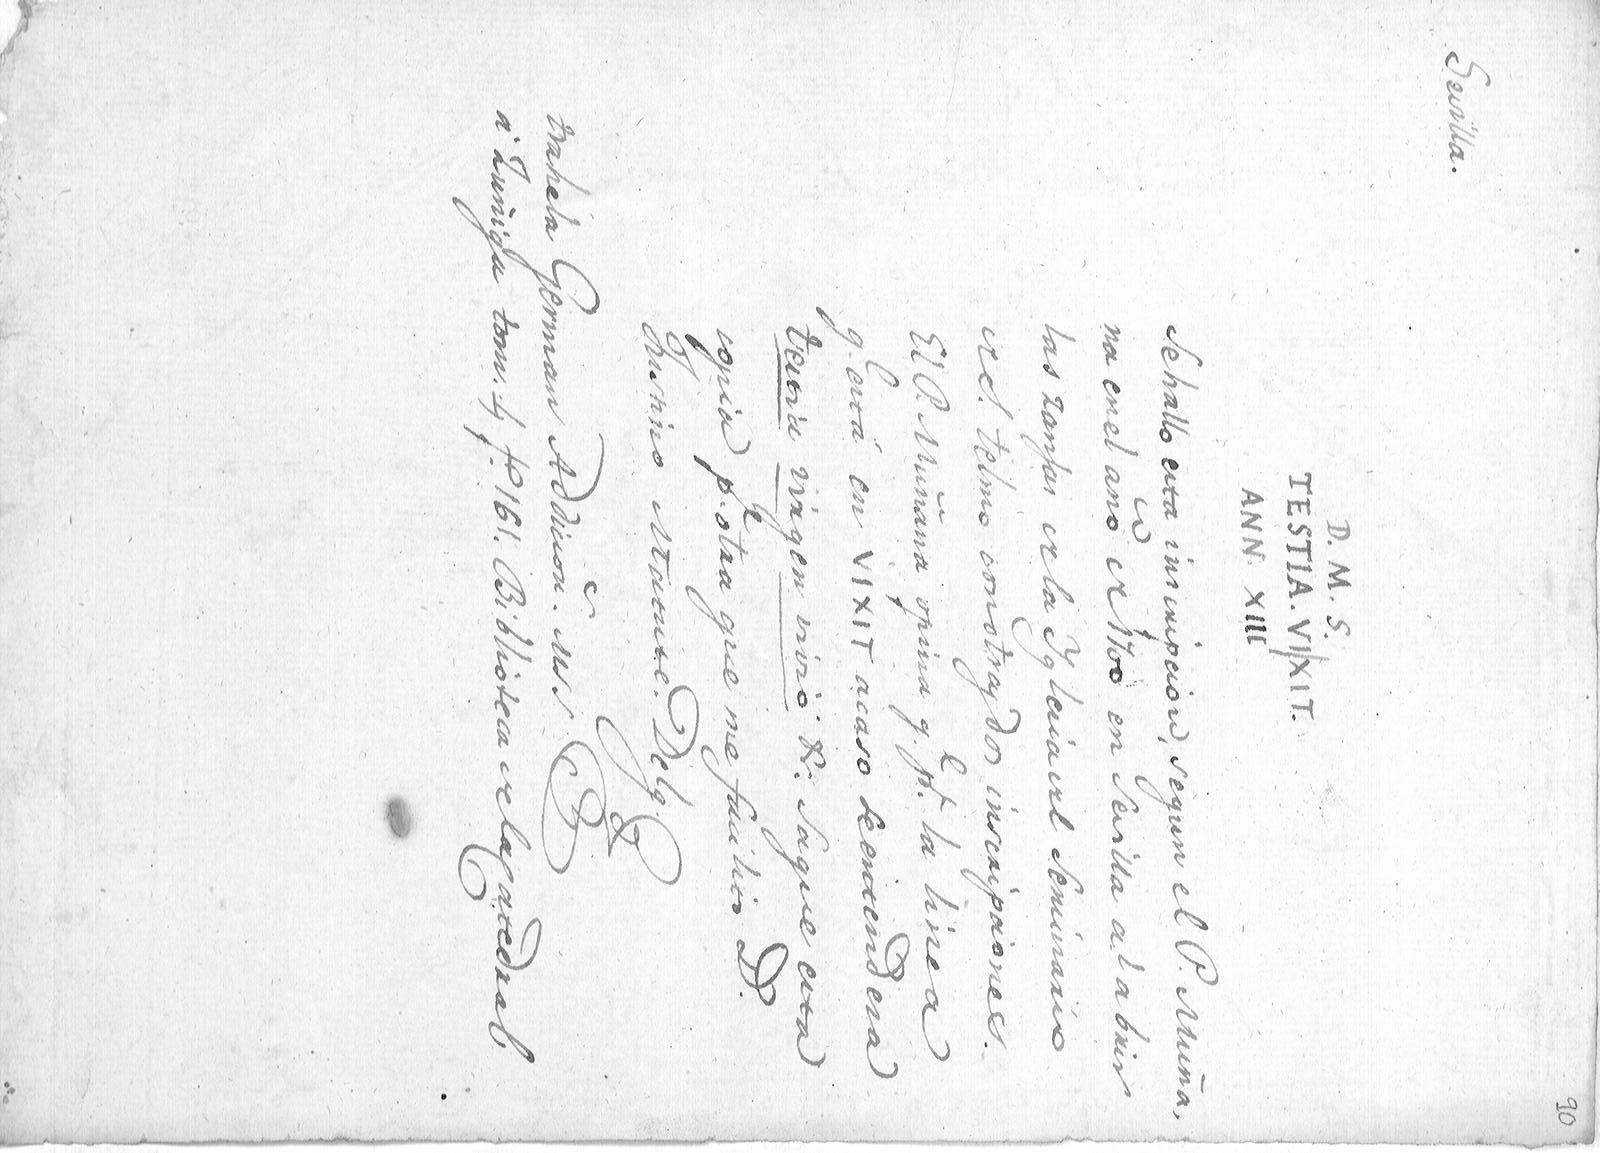 90
Sevilla.
D. M. S.
TESTIA. VI/XIT.
ANN XIII
Se hallo esta inscripcion, segun el P. Muña,
na en el año de 1700 en Sevilla al abrir
las zanjas de la Yglesia del Seminario
de S. Telmo con otras dos inscripciones.
El P. Muñana opina q.e p.r la linea
q. está en VIXIT acaso se entenderá
Testia virgen vivio &. Saque esta
copia p.r otra que me facilito D.
Justino Matute. Delg.
trahela German Addicion.s Ms.
a Zuñiga tom. 4 f. 161. Biblioteca de la Catedral